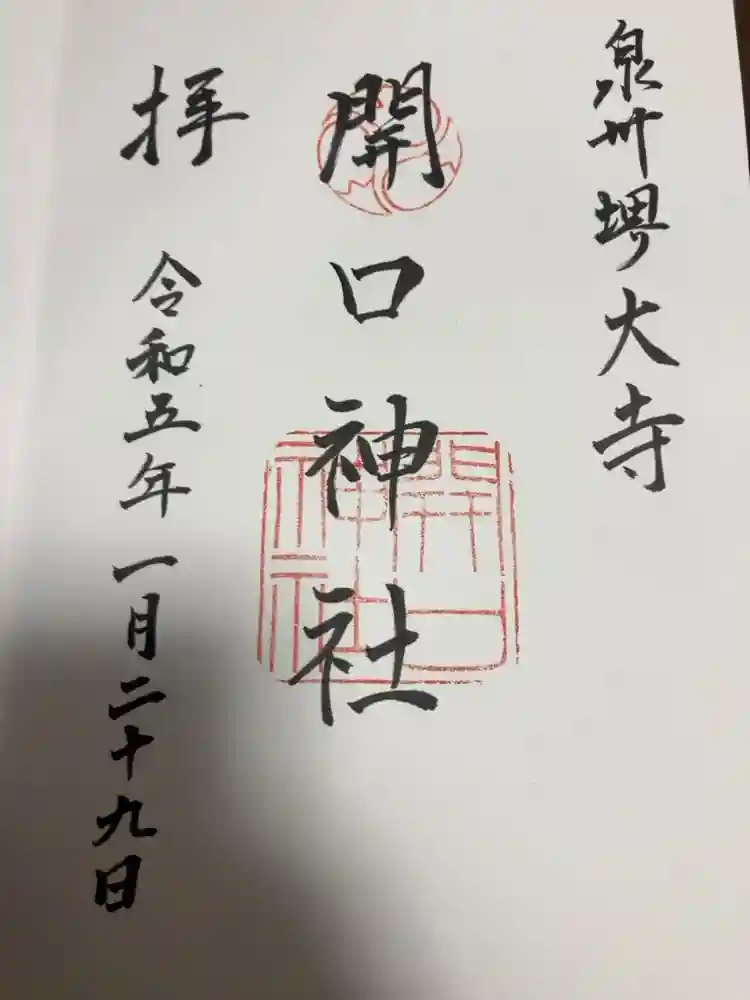 泉州堺大寺
開口神社
開口神社
拝
令和五年一月二十九日